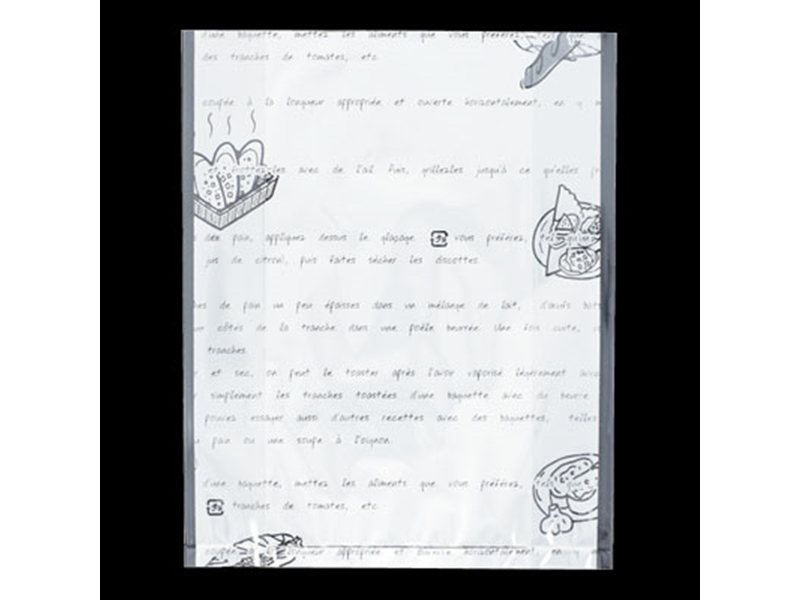 d'une baguette, mettez les aliments que vous préférez, tels que
des tranches de tomates, etc.
coupée à la longueur appropriée et ouverte horizontalement, en y m
et frottez-les avec de l'ail. Puis, grillez-les jusqu'à ce qu'elles
de pain, appliquez dessus le glaçage プラ vous préférez, tel qu'une
jus de citron), puis faites sécher les biscottes.
de pain un peu épaisses dans un mélange de lait, d'œufs
côtés de la tranche dans une poêle beurrée. Une fois cuite,
tranches.
et sec, on peut le toaster après l'avoir vaporisé légèrement
simplement les tranches toastées d'une baguette avec du beurre
pouvez essayer aussi d'autres recettes avec des baguettes, telles
pain ou une soupe à l'oignon.
d'une baguette, mettez les aliments que vous préférez, tels que
プラ tranches de tomates, etc.
coupée à la longueur appropriée et ouverte horizontalement, en y m